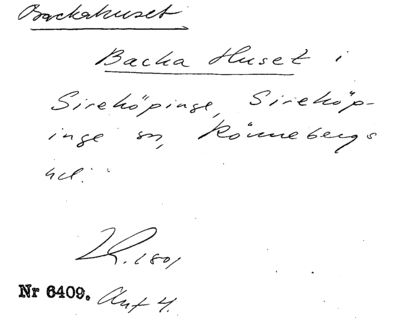 Backahuset
Backa Huset i
Sireköpinge, Sireköp-
inge sn, Rönnebergs
hd.
1801
Nr 6409. Akt 4.